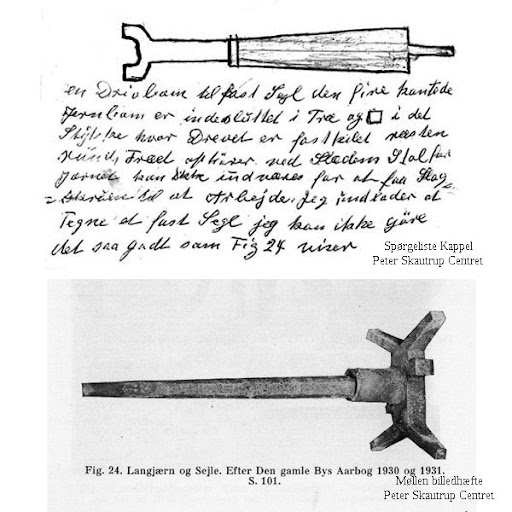 en Drivbom til fast Segl den fire kantede
Jernbom er indesluttet i Træ og □ i det
Stykke hvor Drevet er fastkilet resten
rund, Træet ophører ved Stadens Stol for
Jernet kan ikke undværes for at faa Slag
til at Arbejde. Jeg at
Tegne et fast Segl jeg kan ikke gjöre
det saa godt som Fig 24 viser
Spørgeliste Kappel
Peter Skautrup Centret
Fig. 24. Langjærn og Sejle. Efter Den gamle Bys Aarbog 1930 og 1931.
S. 101.
Møllen billedhæfte
Peter Skautrup Centret